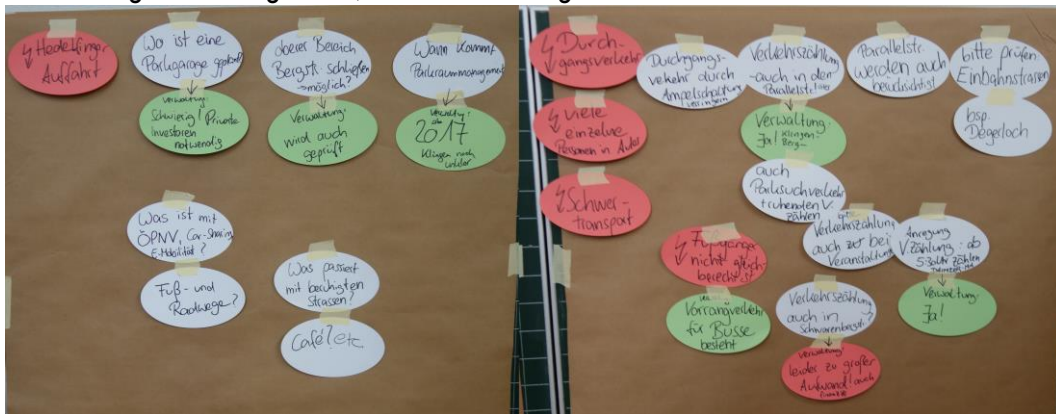 Hedelfinger
Auffahrt
Wo ist eine
Parkgarage geplant?
Verwaltung:
Schwierig! Private
Investoren
notwendig
oberer Bereich
Bergstr. schließen
möglich?
Verwaltung:
wird auch
geprüft
Wann kommt
Parkraummanagement
Verwaltung:
ab
2017
Klingen noch
Was ist mit
ÖPNV, Car-Sharing,
E-Mobilität?
Fuß- und
Radwege?
Was passiert
mit beruhigten
Strassen?
Café? etc.
Durch-
gangsverkehr
viele
einzelne
Personen in Autos
Schwer-
transport
Durchgangs-
vekehr durch
Ampelschaltung
verringern
Verkehrszählung
auch in den
Parallelstr.!
Verwaltung:
Ja! Klingen-
Berg-
auch
Parksuchverkehr
+ ruhenden V.
zählen
Parallelstr.
werden auch
berücksichtigt
bitte prüfen:
Einbahnstrassen
bsp.
Degerloch
Fußgänger
nicht gleich-
berechtigt
Vorrangverkehr
für Busse
besteht
Verkehrszählung
auch bei
Veranstaltung
Anregung
V.Zählung: ab
5:30Uhr zählen
Verwaltung:
Ja!
Verkehrszählung
auch in
Verwaltung:
leider zu großer
Aufwand! auch